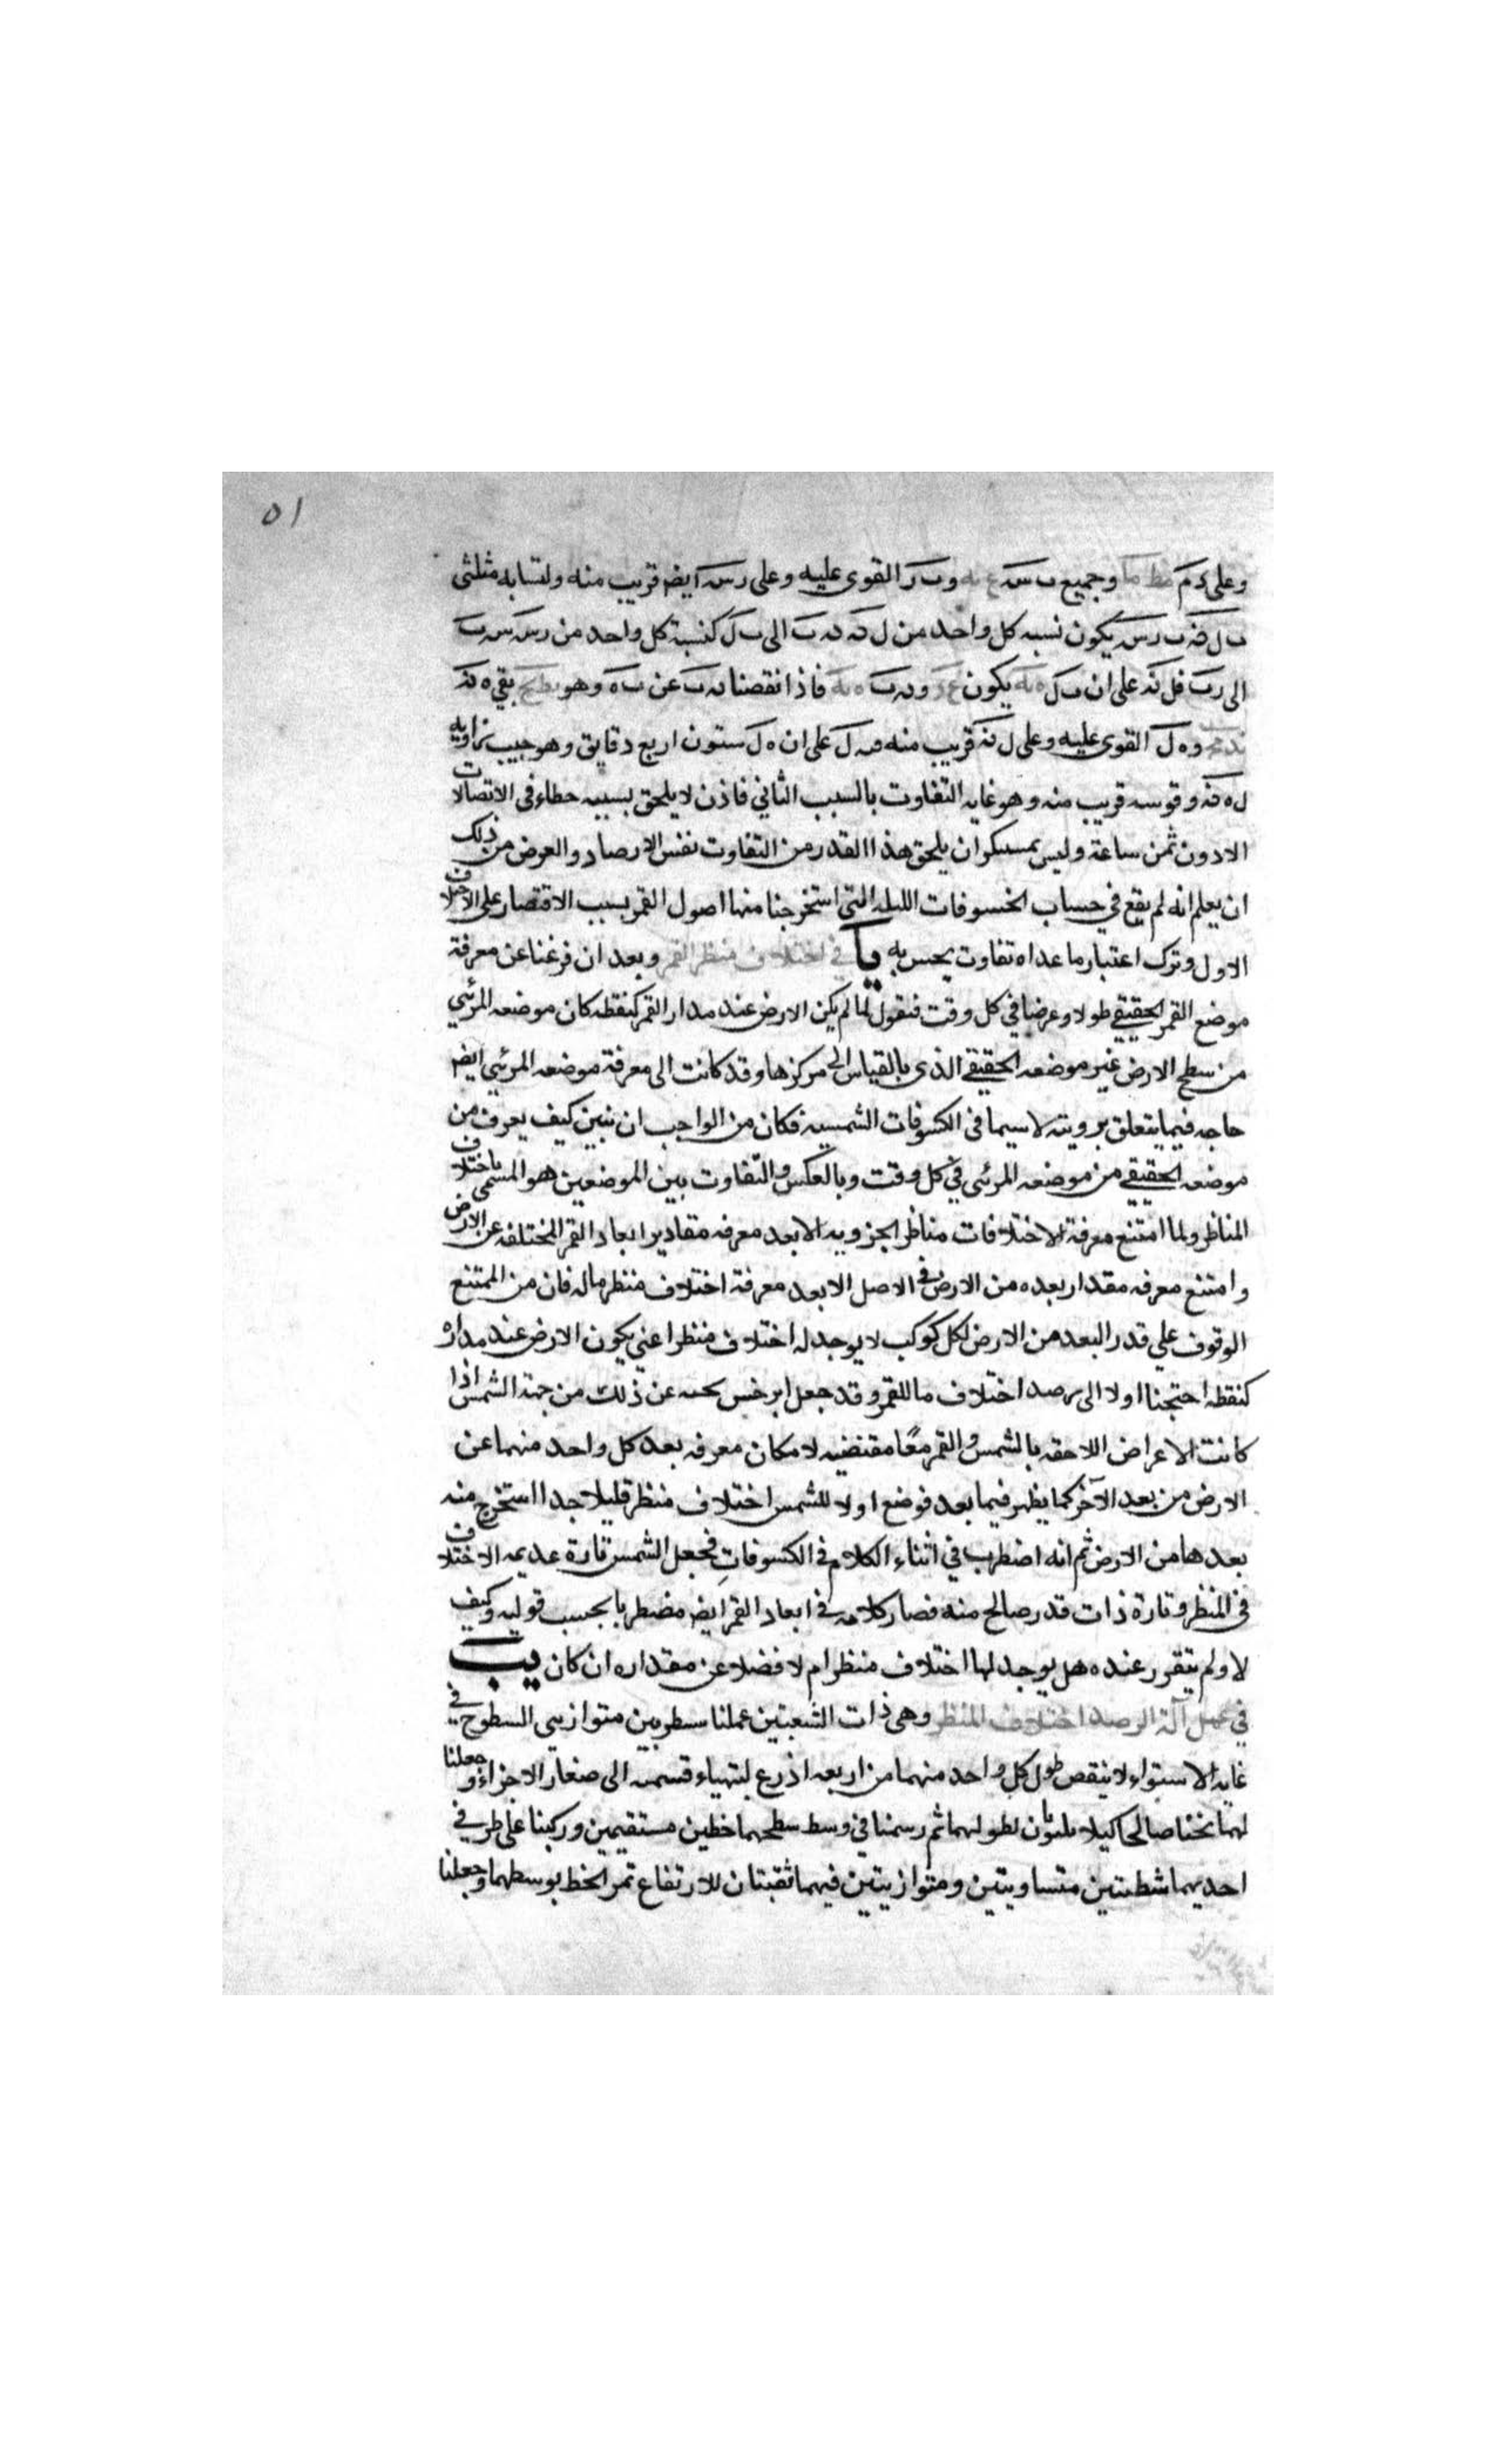 ٥١
وعلى د م مط ما وجميع ب س وب ر القوى عليه وعلى ر س ايضا قريب منه ولتشابه مثلثى
ب ل ن ب ر س يكون نسبه كل واحد من ل ن ن ب الى ب ل كنسبة كل واحد من ر س س ب
الى ر ب فل ن على ان ب ل ه يكون ون ب فاذا نقصنا ن ب عن ب ه وهو بقى ه ن
وه ل القوى عليه وعلى ل ن قريب منه ل على ان ه ل ستون اربع دقايق وهو جيب زاويه
ل ه ن وقوسه قريب منه وهو غايه التفاوت بالسبب الثاني فاذن لا يلحق بسببه خطاء فى الاتصالات
الا دون ثمن ساعة وليس بمستنكر ان يلحق هذا القدر من التفاوت نفس الارصاد والغرض من ذلك
ان يعلم انه لم يقع في حساب الخسوفات الليله التى استخرجنا منها اصول القمر بسبب الاقتصار على الاختلاف
الاول وترك اعتبار ما عداه تفاوت يحس به يا في اختلاف منظر القمر وبعد ان فرغنا عن معرفة
موضع القمر الحقيقي طولا وعرضا في كل وقت فنقول لما لم يكن الارض عند مدار القمر كنقطه كان موضعه المرئى
من سطح الارض غير موضعه الحقيقي الذى بالقياس الى مركزها وقد كانت الى معرفة موضعه المرئي ايضا
حاجه فيما يتعلق برويته لا سيما فى الكسوفات الشمسيه فكان من الواجب ان نبين كيف يعرف من
موضعه الحقيقي من موضعه المرئى في كل وقت وبالعكس والتفاوت بين الموضعين هو المسمى باختلاف
المناظر ولما امتنع معرفة الاختلافات مناظر الجزويه الا بعد معرفه مقادير ابعاد القمر المختلفه عن الارض
وامتنع معرفه مقدار بعده من الارض في الاصل الا بعد معرفة اختلاف منظر ماله فان من الممتنع
الوقوف علي قدر البعد من الارض لكل كوكب لا يوجد له اختلاف منظر اعني يكون الارض عند مداره
كنقطه احتجنا اولا الى رصد اختلاف ما للقمر وقد جعل ابرخس بحثه عن ذلك من جهة الشمس اذا
كانت الاعراض اللاحقه بالشمس والقمر معًا مقتضيه لامكان معرفه بعد كل واحد منهما عن
الارض من بعد الآخر كما يظهر فيما بعد فوضع اولا للشمس اختلاف منظر قليلا جدا استخرج منه
بعدها من الارض ثم انه اضطرب في اثناء الكلام في الكسوفات فجعل الشمس تارة عديمه الاختلاف
فى المنظر وتارة ذات قدر صالح منه فصار كلامه في ابعاد القمر ايضا مضطربا بحسب قوليه وكيف
لا ولم يتقرر عنده هل يوجد لها اختلاف منظر ام لا فضلا عن مقداره ان كان يب
في عمل آلة الرصد اختلاف المنظر وهى ذات الشعبتين عملنا مسطرتين متوازيى السطوح في
غايه الاستواء لا ينقص طول كل واحد منهما من اربعه اذرع لتهياء قسمته الى صغار الاجزاء وجعلنا
لهما ثخنا صالحا كيلا يلتويان لطولهما ثم رسمنا في وسط سطحهما خطين مستقيمين وركبنا على طرفي
احديهما شطبتين متساويتين ومتوازيتين فيهما ثقبتان للارتفاع تمر الخط بوسطهما وجعلنا